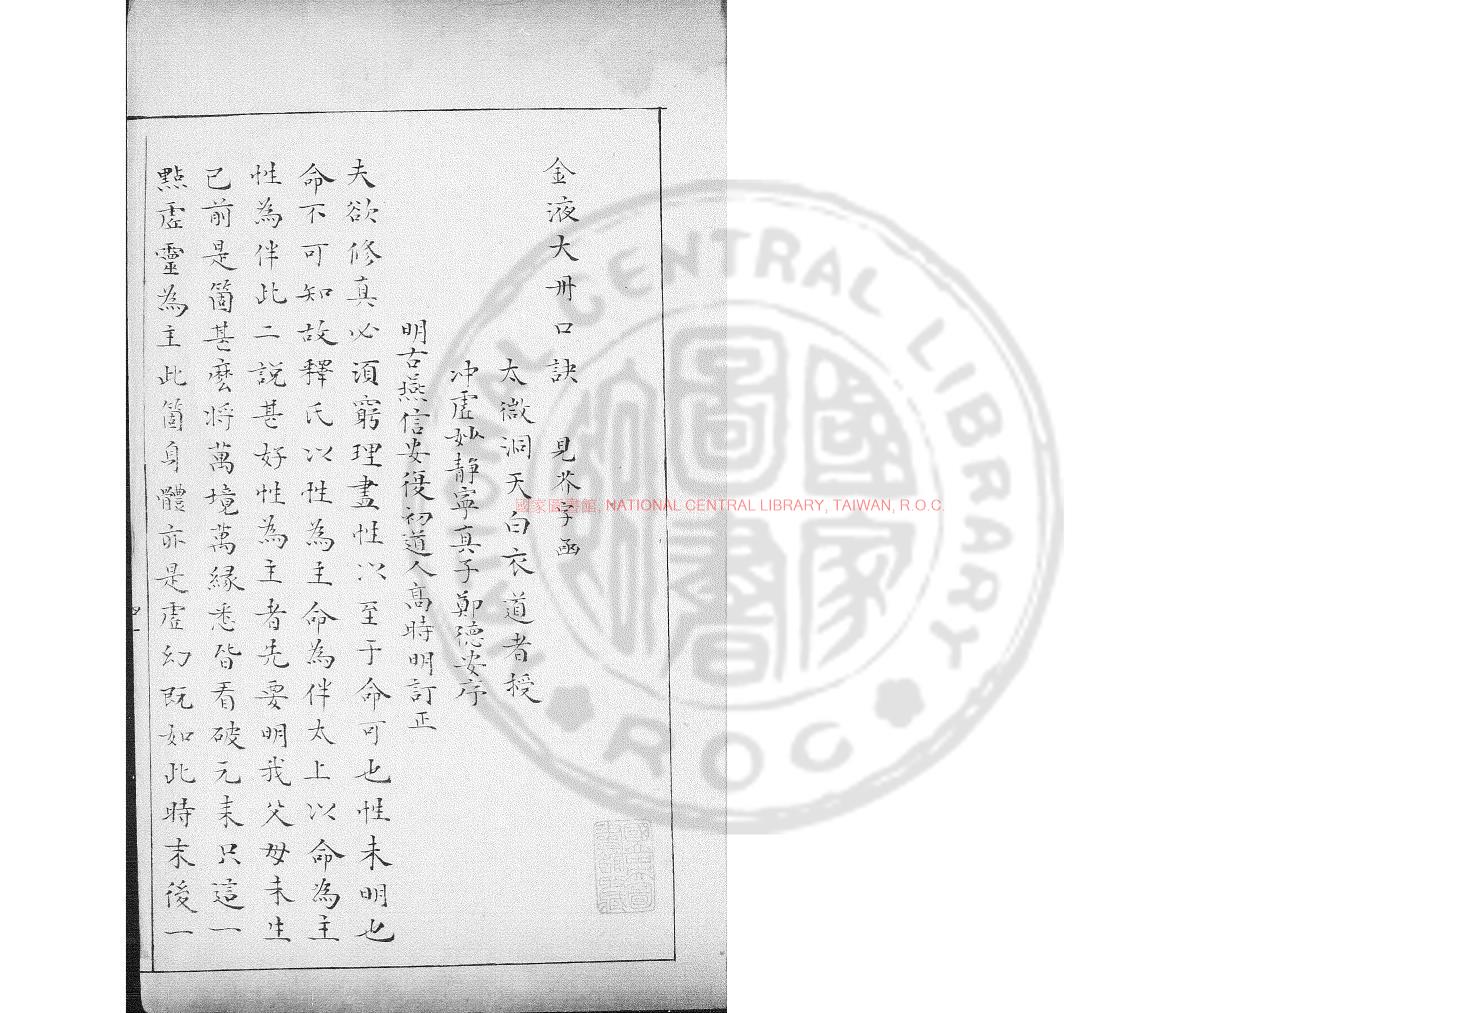 金液大冊口訣 見芥字函
太微洞天白衣道者授
冲虛妙靜寧真子鄭德安序
明古燕信安復初道人高時明訂正
夫欲修真必須窮理盡性以至于命可也性未明也
命不可知故釋氏以性為主命為伴太上以命為主
性為伴此二說甚好性為主者先要明我父母未生
已前是箇甚麼將萬境萬緣悉皆看破元来只這一
點虛靈為主此箇身體亦是虛幻既如此時末後一
國家圖書館, NATIONAL CENTRAL LIBRARY, TAIWAN, R.O.C.
NATIONAL CENTRAL LIBRARY
ROC
國家圖書